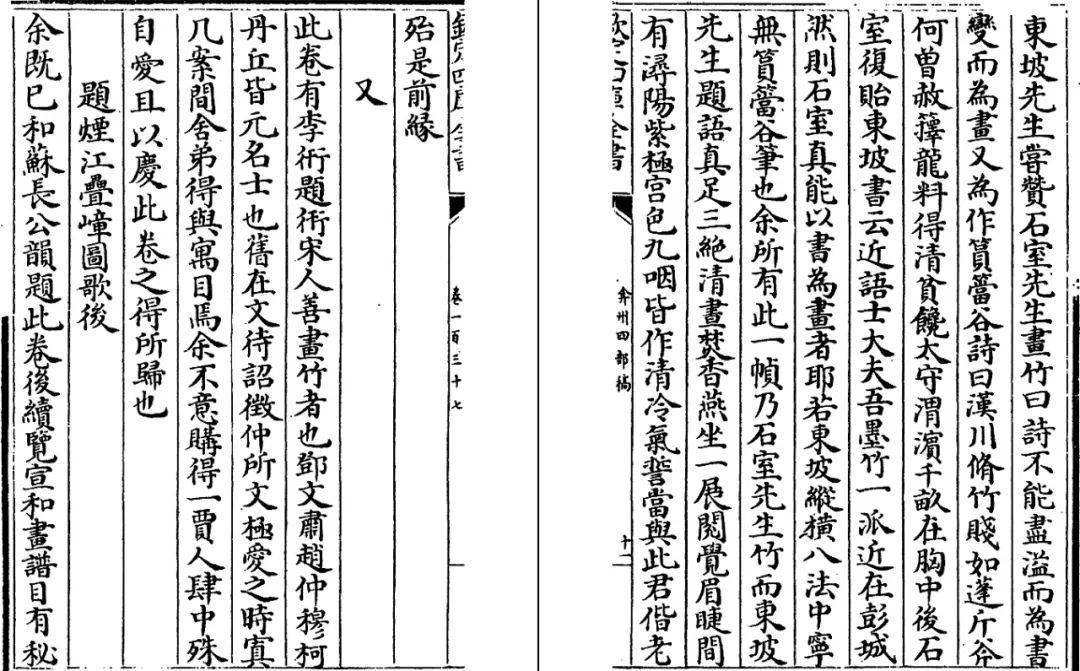 東坡先生嘗贊石室先生畫竹曰詩不能盡溢而為書
變而為畫又為作篔簹谷詩曰漢川脩竹賤如蓬斤斧
何曽赦籜龍料得清貧饞太守渭濵千畝在胸中後石
室復貽東坡書云近語士大夫吾墨竹一派近在彭城
然則石室真能以書為畫者耶若東坡縱横八法中寧
無篔簹谷筆也余所有此一幀乃石室先生竹而東坡
先生題語真足三絶清晝焚香燕坐一展閲覺眉睫間
有潯陽紫極宫色九咽皆作清冷氣誓當與此君偕老
欽定四庫全書
弇州四部稿
十一
欽定四庫全書
卷一百三十七
殆是前縁
又
此卷有李衎題衎宋人善畫竹者也鄧文肅趙仲穆柯
丹丘皆元名士也舊在文待詔徵仲所文極愛之時寘
几案間舍弟得與寓目焉余不意購得一賈人肆中殊
自愛且以慶此卷之得所歸也
題煙江疊嶂圖歌後
余既已和蘇長公韻題此卷後續覽宣和畫譜目有秘